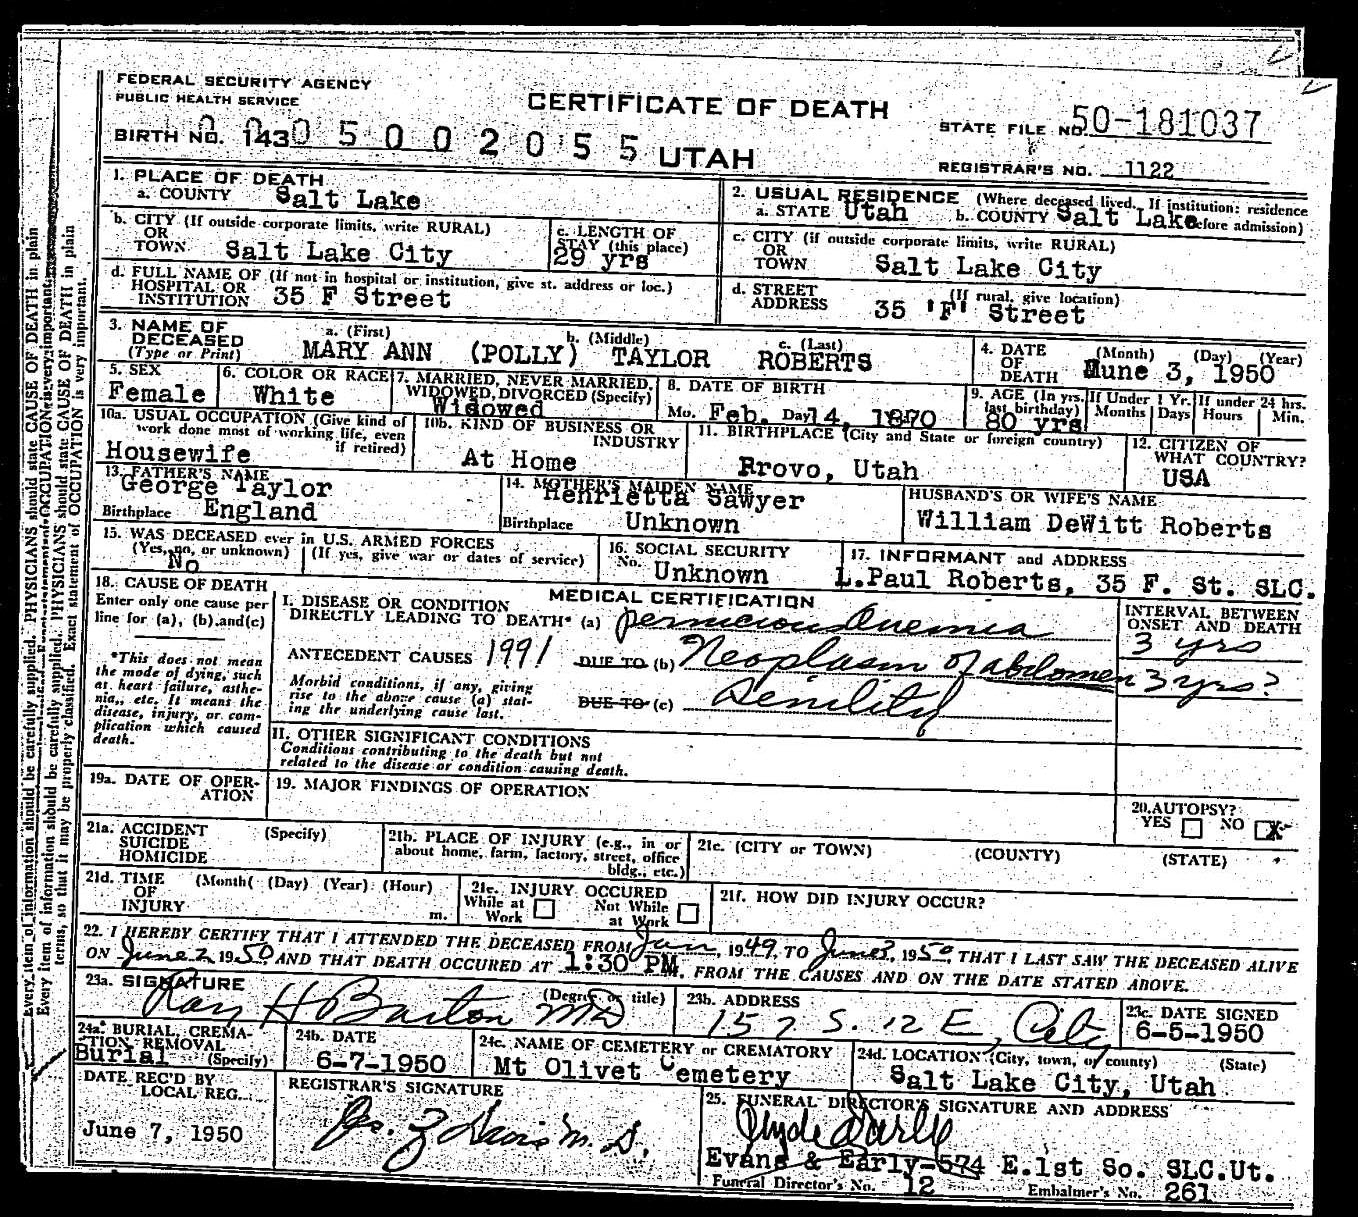 FEDERAL SECURITY AGENCY
PUBLIC HEALTH SERVICE
CERTIFICATE OF DEATH
STATE FILE NO. 50-181037
BIRTH NO. 143 0 0 0 5 0 0 2 0 5 5 UTAH
REGISTRAR'S NO. 1122
1. PLACE OF DEATH
a. COUNTY Salt Lake
2. USUAL RESIDENCE (Where deceased lived. If institution: residence before admission)
a. STATE Utah b. COUNTY Salt Lake
b. CITY (If outside corporate limits, write RURAL)
OR
TOWN Salt Lake City
c. LENGTH OF
STAY (this place)
29 yrs
c. CITY (if outside corporate limits, write RURAL)
OR
TOWN Salt Lake City
d. FULL NAME OF (If not in hospital or institution, give st. address or loc.)
HOSPITAL OR
INSTITUTION 35 F Street
d. STREET (If rural, give location)
ADDRESS 35 'F' Street
3. NAME OF
DECEASED
(Type or Print)
a. (First) b. (Middle) c. (Last)
MARY ANN (POLLY) TAYLOR ROBERTS
4. DATE
OF
DEATH
(Month) (Day) (Year)
June 3, 1950
5. SEX
Female
6. COLOR OR RACE
White
7. MARRIED, NEVER MARRIED,
WIDOWED, DIVORCED (Specify)
Widowed
8. DATE OF BIRTH
Mo. Feb. Day 14, 1870
9. AGE (In yrs. last birthday)
80 yrs
If Under 1 Yr.
Months Days
If under 24 hrs.
Hours Min.
10a. USUAL OCCUPATION (Give kind of
work done most of working life, even
if retired)
Housewife
10b. KIND OF BUSINESS OR
INDUSTRY
At Home
11. BIRTHPLACE (City and State or foreign country)
Provo, Utah
12. CITIZEN OF
WHAT COUNTRY?
USA
13. FATHER'S NAME
George Taylor
Birthplace England
14. MOTHER'S MAIDEN NAME
Henrietta Sawyer
Birthplace Unknown
HUSBAND'S OR WIFE'S NAME
William DeWitt Roberts
15. WAS DECEASED ever in U.S. ARMED FORCES
(Yes, no, or unknown) (If yes, give war or dates of service)
No
16. SOCIAL SECURITY
No. Unknown
17. INFORMANT and ADDRESS
L.Paul Roberts, 35 F. St. SLC.
18. CAUSE OF DEATH
Enter only one cause per
line for (a), (b) and (c)
*This does not mean
the mode of dying, such
as heart failure, asthe-
nia, etc. It means the
disease, injury, or com-
plication which caused
death.
MEDICAL CERTIFICATION
I. DISEASE OR CONDITION
DIRECTLY LEADING TO DEATH* (a) pernicious Anemia
INTERVAL BETWEEN
ONSET AND DEATH
3 yrs
ANTECEDENT CAUSES 1991 DUE TO (b) Neoplasm of abdomen 3 yrs?
Morbid conditions, if any, giving
rise to the above cause (a) stat-
ing the underlying cause last.
DUE TO (c) Senility
II. OTHER SIGNIFICANT CONDITIONS
Conditions contributing to the death but not
related to the disease or condition causing death.
19a. DATE OF OPER-
ATION
19. MAJOR FINDINGS OF OPERATION
20. AUTOPSY?
YES NO X
21a. ACCIDENT (Specify)
SUICIDE
HOMICIDE
21b. PLACE OF INJURY (e.g., in or
about home, farm, factory, street, office
bldg., etc.)
21c. (CITY or TOWN) (COUNTY) (STATE)
21d. TIME (Month( (Day) (Year) (Hour)
OF
INJURY m.
21e. INJURY OCCURED
While at Work Not While at Work
21f. HOW DID INJURY OCCUR?
22. I HEREBY CERTIFY THAT I ATTENDED THE DECEASED FROM Jan, 1949, TO June 3, 1950 THAT I LAST SAW THE DECEASED ALIVE
ON June 2 1950 AND THAT DEATH OCCURED AT 1:30 PM. FROM THE CAUSES AND ON THE DATE STATED ABOVE.
23a. SIGNATURE (Degree or title)
Ray H Barton MD
23b. ADDRESS
157 S. 12 E, City
23c. DATE SIGNED
6-5-1950
24a. BURIAL, CREMA-
TION REMOVAL
Burial (Specify)
24b. DATE
6-7-1950
24c. NAME OF CEMETERY or CREMATORY
Mt Olivet Cemetery
24d. LOCATION (City, town, or county) (State)
Salt Lake City, Utah
DATE REC'D BY
LOCAL REG.
June 7, 1950
REGISTRAR'S SIGNATURE
25. FUNERAL DIRECTOR'S SIGNATURE AND ADDRESS
Evans & Early-574 E.1st So. SLC.Ut.
Funeral Director's No. 12 Embalmer's No. 261
Every item of information should be carefully supplied. PHYSICIANS should state CAUSE OF DEATH in plain
Every item of information should be carefully supplied. PHYSICIANS should state CAUSE OF DEATH in plain
terms, so that it may be properly classified. Exact statement of OCCUPATION is very important.